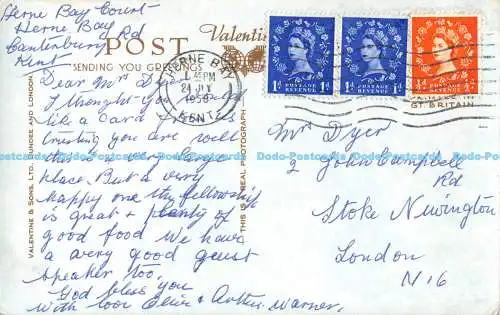 Herne Bay Court
Herne Bay Rd
Canterbury
Kent
POST
Valentine
SENDING YOU GREETINGS
Dear Mr Dyer
I thought you would
like a card
trusting you are well
this is a very large
place. But a very
happy one the fellowship
is great & plenty of
good food we have
a very good guest
speaker too.
God bless you
with love Elsie & Arthur Warner.
VALENTINE & SONS, LTD., DUNDEE AND LONDON.
THIS IS A REAL PHOTOGRAPH
HERNE BAY
PM
24 JLY
1959
KENT
1d POSTAGE REVENUE 1d
1d POSTAGE REVENUE 1d
½d POSTAGE REVENUE ½d
GT BRITAIN
Mr Dyer
2 John Campbell
Rd
Stoke Newington
London
N16
Dodo-Postcards